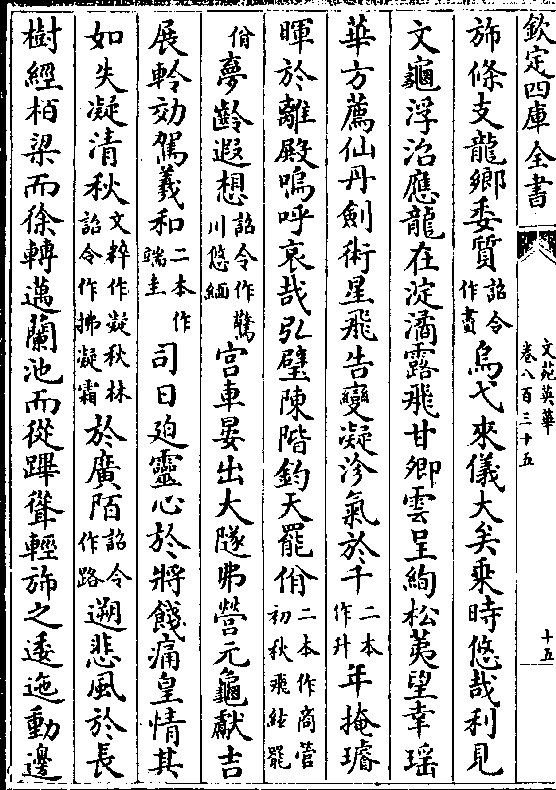 欽定四庫全書
文苑英華
卷八百三十五
十五
斾條支龍鄉委質詔令作贄烏弋來儀大矣乘時悠哉利見
文龜浮洛應龍在淀潏露飛甘卿雲呈絢松荑望幸瑶
華方薦仙丹劍術星飛告變凝沴氣於千二本作升年掩璿
暉於離殿嗚呼哀哉弘璧陳階鈞天罷佾二本作商管初秋飛絃罷
佾夢齡遐想詔令作驚川悠緬宮車晏出大隧弗營元龜獻吉
展軨効駕羲和二本作端圭司日廹靈心於將餞痛皇情其
如失凝清秋文粹作凝秋林詔令作拂凝霜於廣陌詔令作路遡悲風於長
樹經栢梁而徐轉邁蘭池而從蹕聳輕斾之逶迤動邊